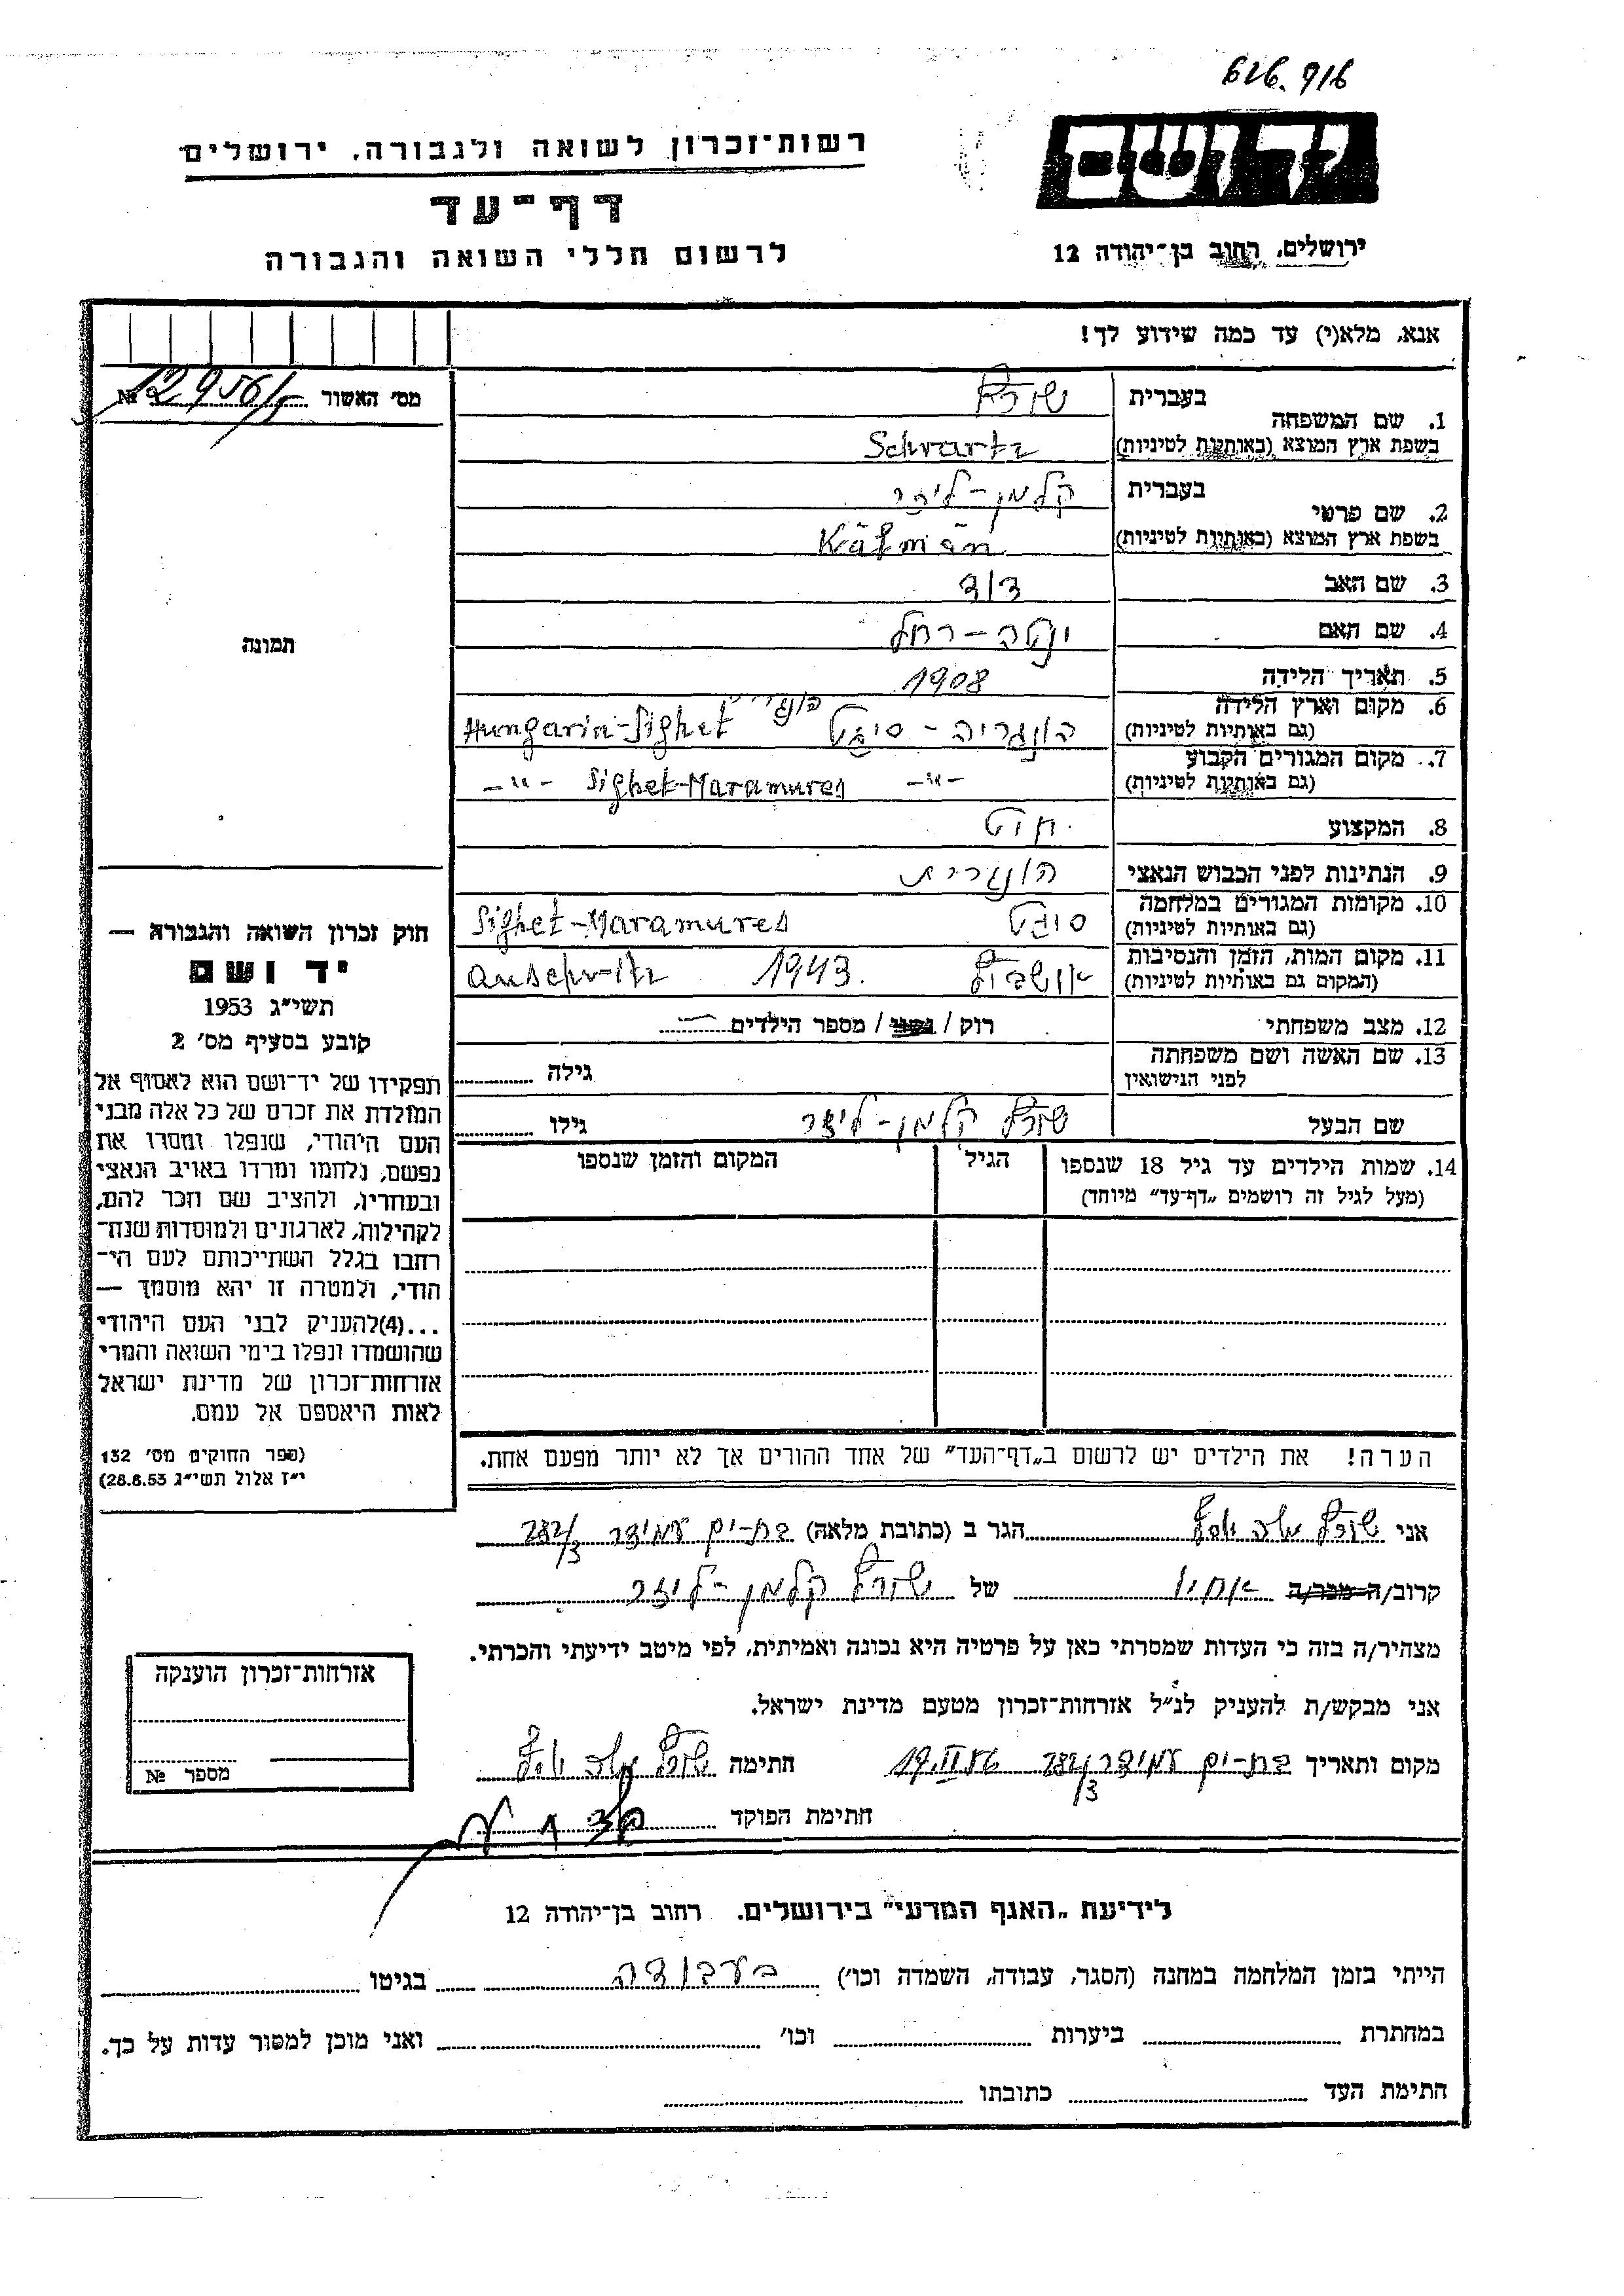 626.916
יד ושם
רשות־זכרון לשואה ולגבורה, ירושלים
דף־עד
לרשום חללי השואה והגבורה
ירושלים, רחוב בן־יהודה 12
אנא, מלא(י) עד כמה שידוע לך!
מס' האשור № 12956/5
1. שם המשפחה בעברית שורץ
בשפת ארץ המוצא (באותיות לטיניות) Schvartz
2. שם פרטי בעברית קלמן-ליזר
בשפת ארץ המוצא (באותיות לטיניות) Kálmán
3. שם האב דוד
4. שם האם ינטה-רחל
5. תאריך הלידה 1908
6. מקום וארץ הלידה (גם באותיות לטיניות) הונגריה-סיגט Hungaria-Sighet
7. מקום המגורים הקבוע (גם באותיות לטיניות) -"- Sighet-Maramures -"-
8. המקצוע חיט
9. הנתינות לפני הכבוש הנאצי הונגרית
10. מקומות המגורים במלחמה (גם באותיות לטיניות) סיגט Sighet-Maramures
11. מקום המות, הזמן והנסיבות (המקום גם באותיות לטיניות) אושביץ 1943. Auschwitz
12. מצב משפחתי רוק / נשוי / מספר הילדים —
13. שם האשה ושם משפחתה לפני הנישואין גילה
שם הבעל שורץ קלמן-ליזר גילו
14. שמות הילדים עד גיל 18 שנספו (מעל לגיל זה רושמים „דף־עד" מיוחד) הגיל המקום והזמן שנספו
הערה! את הילדים יש לרשום ב„דף־העד" של אחד ההורים אך לא יותר מפעם אחת.
תמונה
חוק זכרון השואה והגבורה —
יד ושם
תשי"ג 1953
קובע בסעיף מס' 2
תפקידו של יד־ושם הוא לאסוף אל
המולדת את זכרם של כל אלה מבני
העם היהודי, שנפלו ומסרו את
נפשם, נלחמו ומרדו באויב הנאצי
ובעוזריו, ולהציב שם וזכר להם,
לקהילות, לארגונים ולמוסדות שנח־
רבו בגלל השתייכותם לעם הי־
הודי, ולמטרה זו יהא מוסמך —
...(4)להעניק לבני העם היהודי
שהושמדו ונפלו בימי השואה והמרי
אזרחות־זכרון של מדינת ישראל
לאות היאספם אל עמם.
(ספר החוקים מס' 132
י"ז אלול תשי"ג 28.8.53)
אני שורץ הגר ב (כתובת מלאה) בת-ים עמידר 282/3
קרוב/ה מכר/ה אחיו של שורץ קלמן-ליזר
מצהיר/ה בזה כי העדות שמסרתי כאן על פרטיה היא נכונה ואמיתית, לפי מיטב ידיעתי והכרתי.
אני מבקש/ת להעניק לנ"ל אזרחות־זכרון מטעם מדינת ישראל.
מקום ותאריך בת-ים עמידר 282/3 19.II.56 חתימה שורץ
חתימת הפוקד
אזרחות־זכרון הוענקה
מספר №
לידיעת „האגף המדעי" בירושלים, רחוב בן־יהודה 12
הייתי בזמן המלחמה במחנה (הסגר, עבודה, השמדה וכו') בעבודה בגיטו
במחתרת ביערות וכו' ואני מוכן למסור עדות על כך.
חתימת העד כתובתו